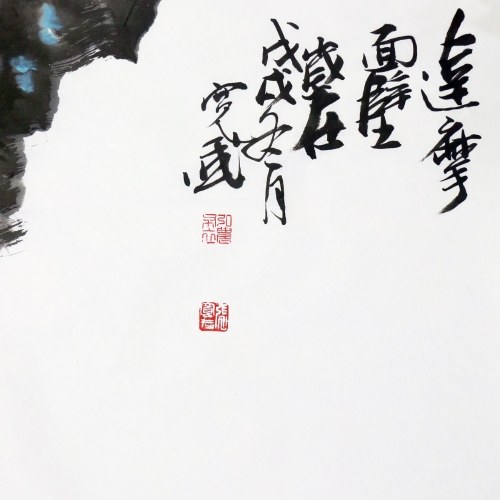 達摩
面壁
歲在
戊戌冬月
寬武